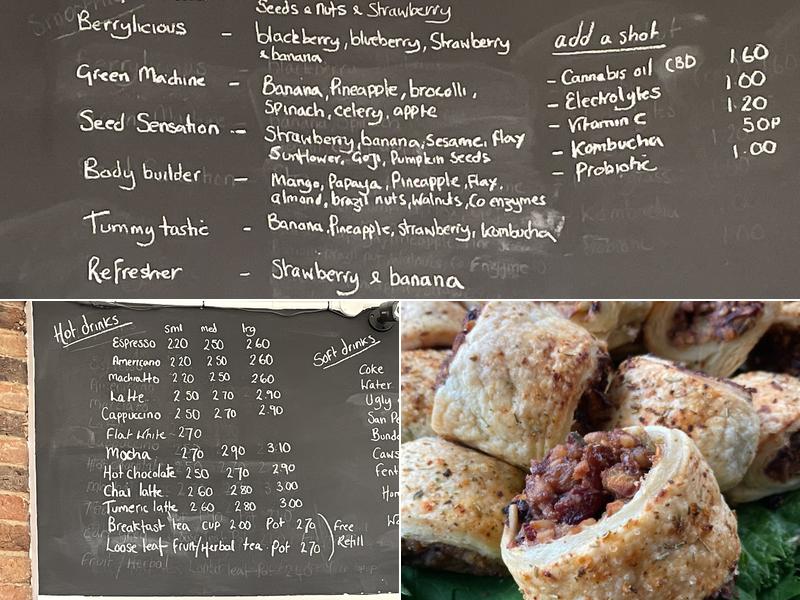 Seeds & nuts & Strawberry
Berrylicious - blackberry, blueberry, Strawberry
& banana
Green Machine - Banana, Pineapple, brocolli,
Spinach, celery, apple
Seed Sensation - Strawberry, banana, Sesame, Flax
Sunflower, Goji, Pumpkin Seeds
Body builder - Mango, Papaya, Pineapple, Flax,
almond, brazil nuts, Walnuts, Co enzymes
Tummy tastic - Banana, Pineapple, strawberry, kombucha
Refresher - Strawberry & banana
add a shot
- Cannabis oil CBD 1.60
- Electrolytes 1.00
- Vitamin C 1.20
- Kombucha 50p
- Probiotic 1.00
Hot drinks
sml med lrg
Espresso 2.20 2.50 2.60
Americano 2.20 2.50 2.60
machiatto 2.20 2.50 2.60
Latte 2.50 2.70 2.90
Cappuccino 2.50 2.70 2.90
Flat White - 2.70
Mocha 2.70 2.90 3.10
Hot chocolate 2.50 2.70 2.90
Chai latte 2.60 2.80 3.00
Tumeric latte 2.60 2.80 3.00
Breakfast tea cup 2.00 Pot 2.70
Loose leaf fruit/Herbal tea Pot 2.70
Free
Refill
Soft drinks
Coke
Water
Ugly
San Pe
Bunda
Caws
Fent